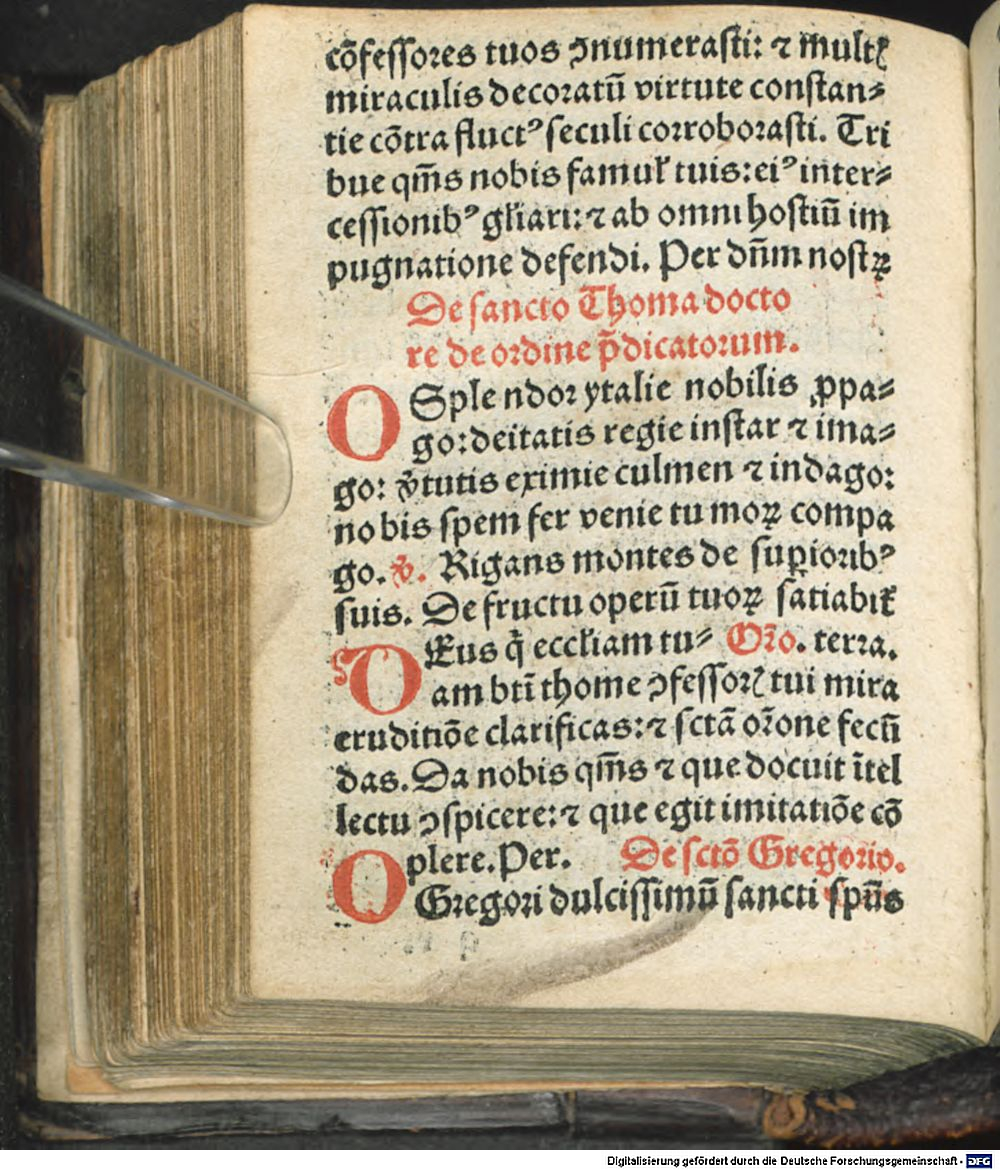 cōfessores tuos ↄnumerasti: ⁊ multꝭ
miraculis decoratū virtute constan⸗
tie cōtra fluctꝰ seculi corroborasti. Tri
bue qm̄s nobis famulꝭ tuis: eiꝰ inter⸗
cessionibꝰ gl̄iari: ⁊ ab omni hostiū im
pugnatione defendi. Per dn̄m nostꝝ
De sancto Thoma docto
re de ordine p̄dicatorum.
O Splendor ytalie nobilis ꝓpa⸗
go: deitatis regie instar ⁊ ima⸗
go: v̄tutis eximie culmen ⁊ indago:
nobis spem fer venie tu moꝝ compa
go. v̄. Rigans montes de suꝑioribꝰ
suis. De fructu operū tuoꝝ satiabit̄
DEus q̄ eccl̄iam tu⸗ Or̄o. terra.
am bt̄i thome ↄfessorꝭ tui mira
eruditiōe clarificas: ⁊ sctā or̄one fecū
das. Da nobis qm̄s ⁊ que docuit ītel
lectu ↄspicere: ⁊ que egit imitatiōe cō
plere. Per. De sctō Gregorio.
O Gregori dulcissimū sancti sp̄ūs
Digitalisierung gefördert durch die Deutsche Forschungsgemeinschaft - DFG